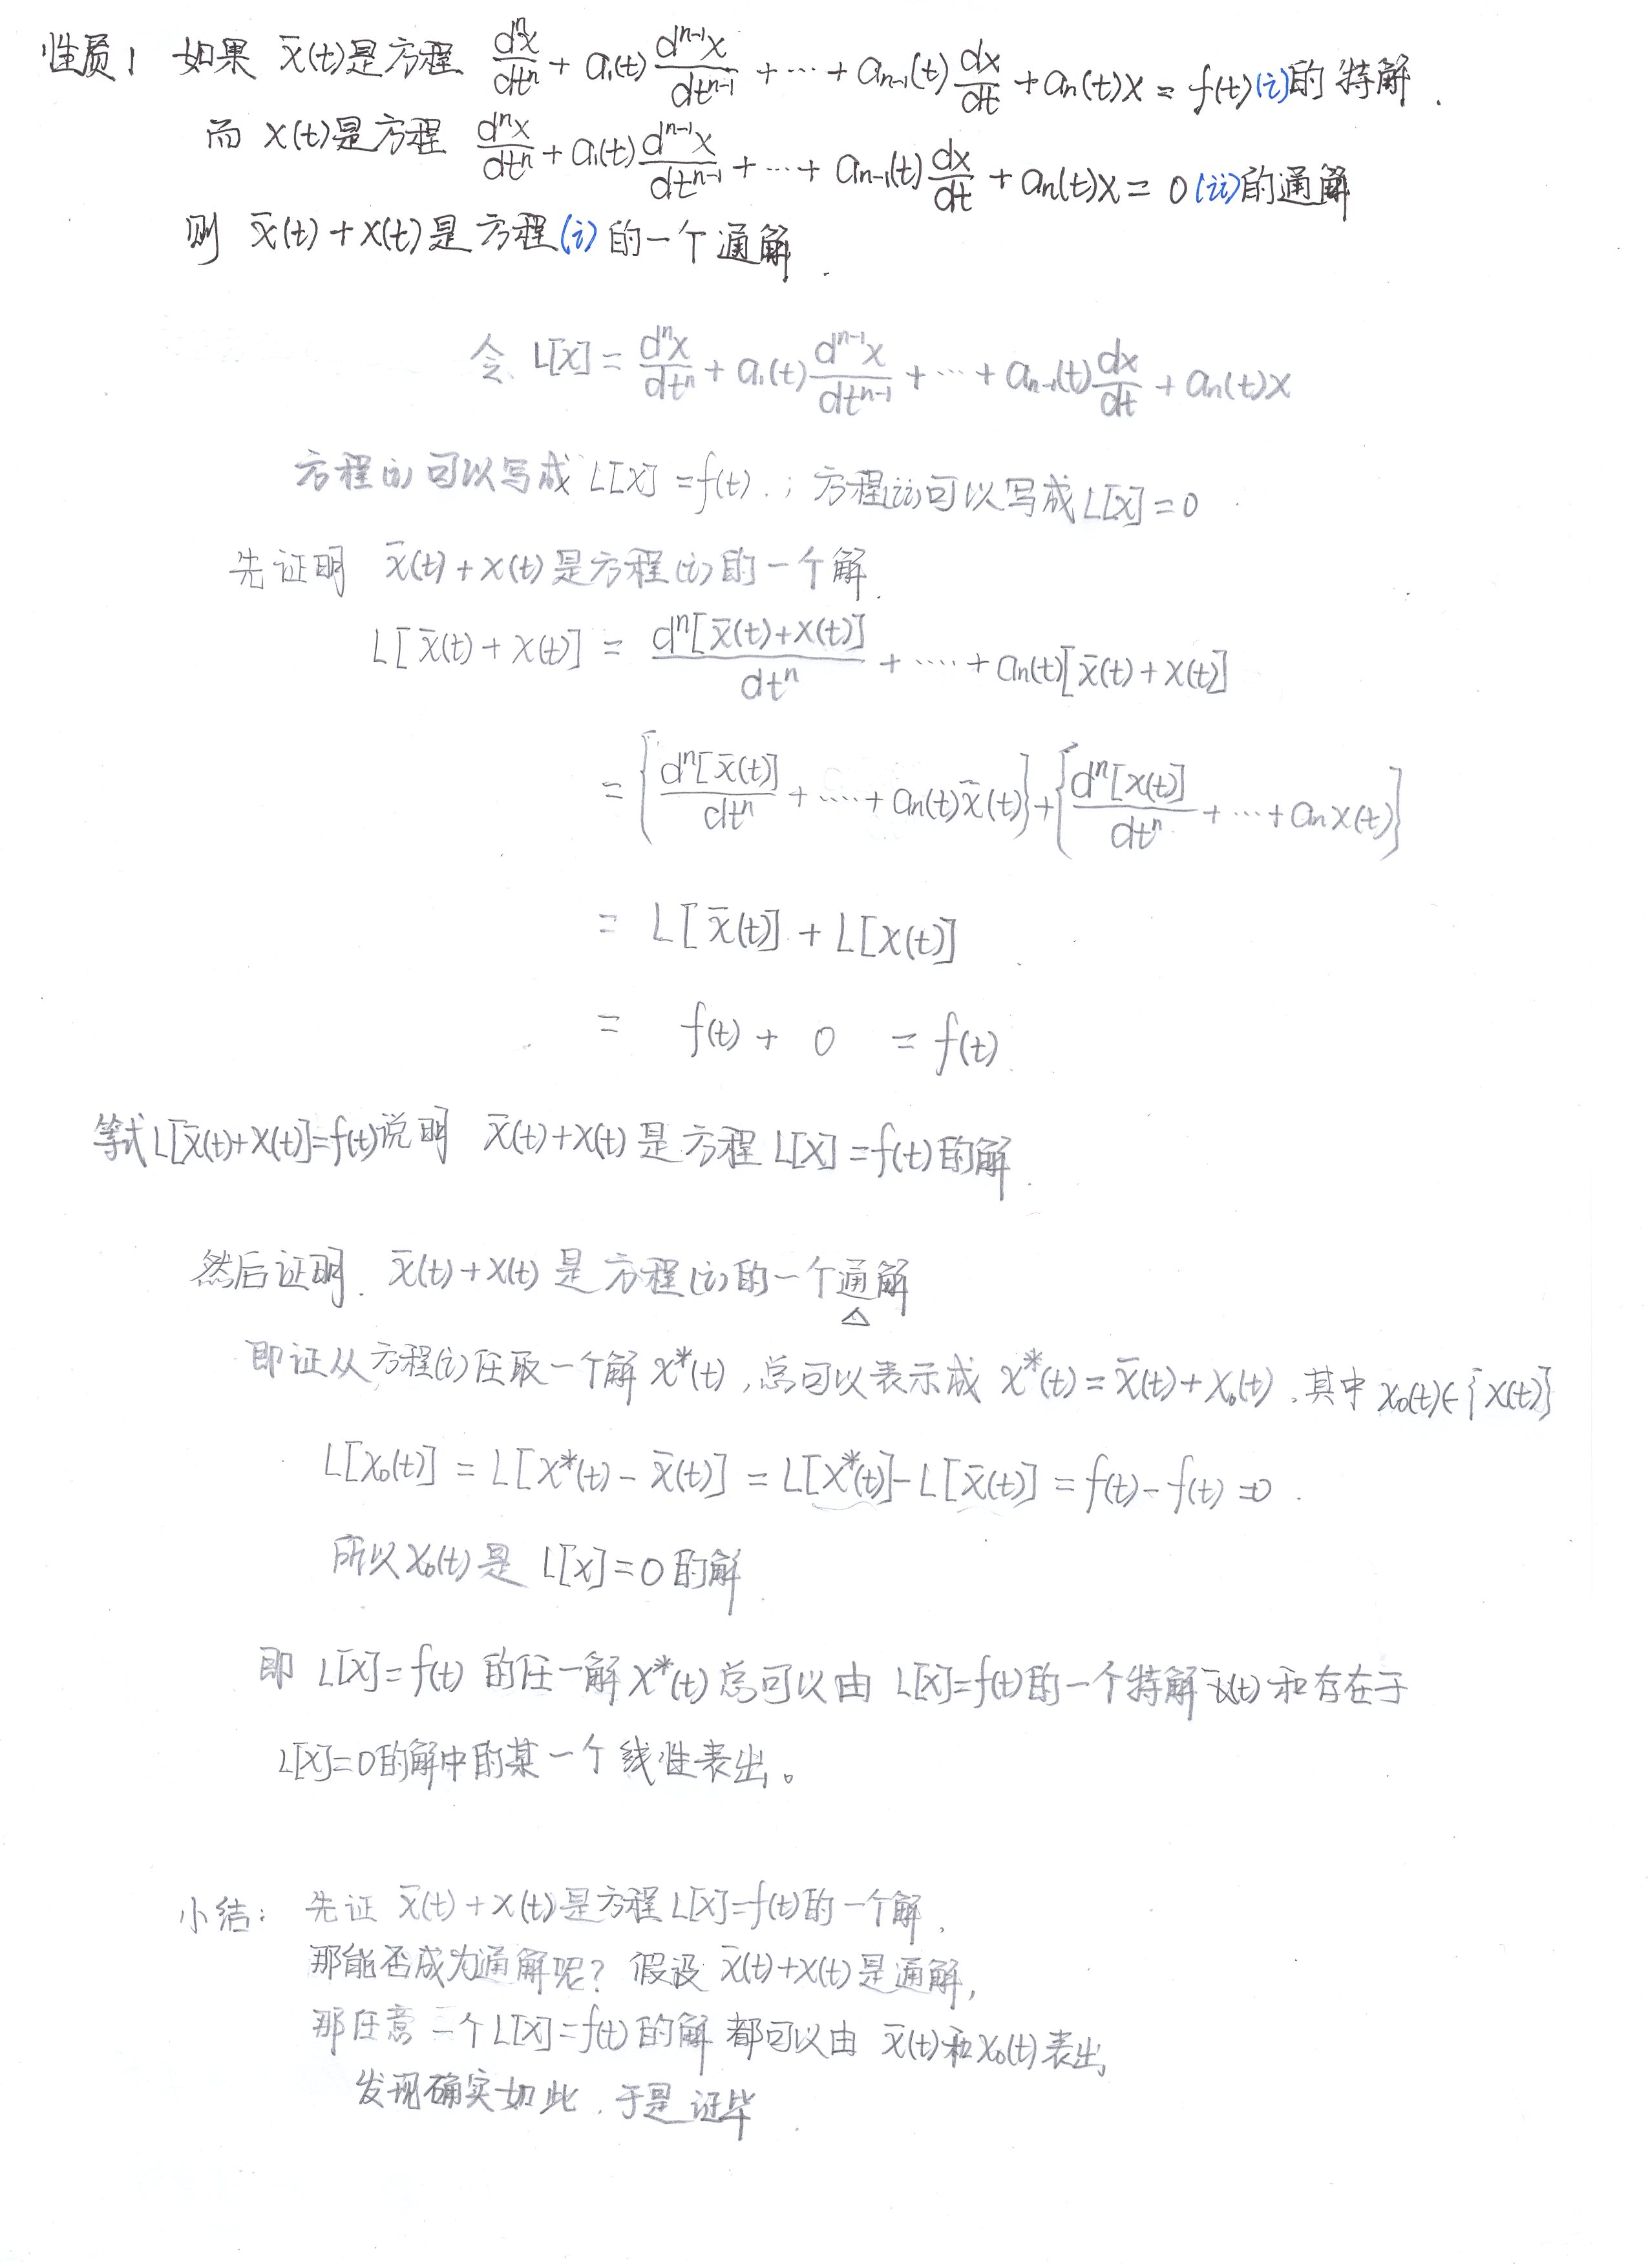 性质1 如果 x̄(t)是方程 dⁿx/dtⁿ + a₁(t) dⁿ⁻¹x/dtⁿ⁻¹ + ⋯ + aₙ₋₁(t) dx/dt + aₙ(t)x = f(t)(i)的特解.
而 x(t)是方程 dⁿx/dtⁿ + a₁(t) dⁿ⁻¹x/dtⁿ⁻¹ + ⋯ + aₙ₋₁(t) dx/dt + aₙ(t)x = 0(ii)的通解
则 x̄(t)+x(t)是方程(i)的一个通解.
令 L[x] = dⁿx/dtⁿ + a₁(t) dⁿ⁻¹x/dtⁿ⁻¹ + ⋯ + aₙ₋₁(t) dx/dt + aₙ(t)x
方程(i)可以写成 L[x]=f(t).; 方程(ii)可以写成L[x]=0
先证明 x̄(t)+x(t)是方程(i)的一个解.
L[x̄(t)+x(t)] = dⁿ[x̄(t)+x(t)]/dtⁿ + ⋯⋯ + aₙ(t)[x̄(t)+x(t)]
= {dⁿ[x̄(t)]/dtⁿ + ⋯⋯ + aₙ(t)x̄(t)} + {dⁿ[x(t)]/dtⁿ + ⋯ + aₙx(t)}
= L[x̄(t)] + L[x(t)]
= f(t) + 0 = f(t)
等式L[x̄(t)+x(t)]=f(t)说明 x̄(t)+x(t)是方程L[x]=f(t)的解.
然后证明. x̄(t)+x(t)是方程(i)的一个通解
△
即证从方程(i)任取一个解 x*(t),总可以表示成 x*(t)=x̄(t)+x₀(t).其中x₀(t)∈{x(t)}
L[x₀(t)] = L[x*(t)-x̄(t)] = L[x*(t)]-L[x̄(t)] = f(t)-f(t)=0.
所以x₀(t)是 L[x]=0的解.
即 L[x]=f(t) 的任一解x*(t)总可以由 L[x]=f(t)的一个特解x̄(t)和存在于
L[x]=0的解中的某一个线性表出。
小结: 先证 x̄(t)+x(t)是方程L[x]=f(t)的一个解,
那能否成为通解呢? 假设 x̄(t)+x(t)是通解,
那任意一个L[x]=f(t)的解都可以由 x̄(t)和x₀(t)表出,
发现确实如此.于是证毕.